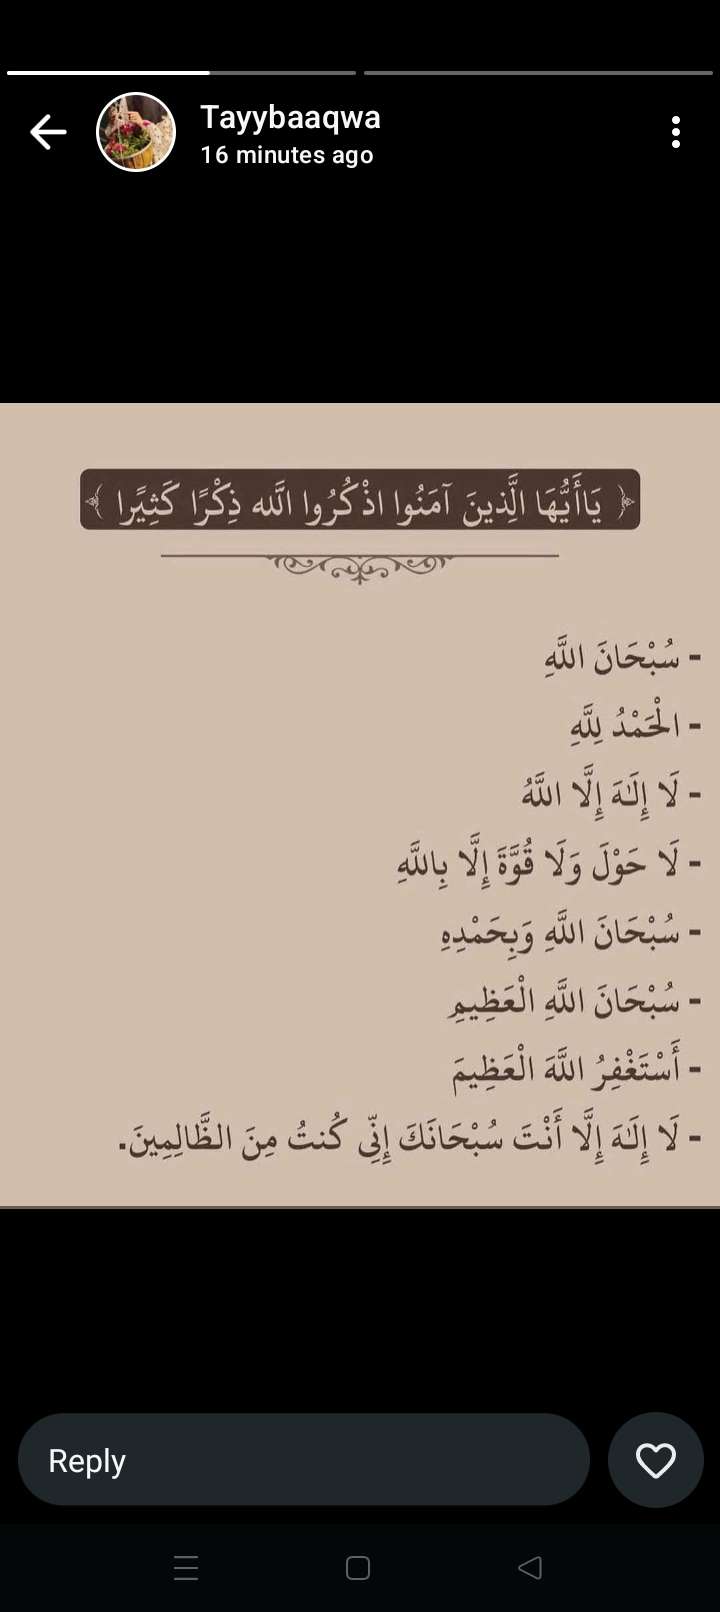 Tayybaaqwa
16 minutes ago
﴿ يَاأَيُّهَا الَّذِينَ آمَنُوا اذْكُرُوا اللَّه ذِكْرًا كَثِيرًا ﴾
- سُبْحَانَ اللَّهِ
- الْحَمْدُ لِلَّهِ
- لَا إِلَهَ إِلَّا اللَّهُ
- لَا حَوْلَ وَلَا قُوَّةَ إِلَّا بِاللَّهِ
- سُبْحَانَ اللَّهِ وَبِحَمْدِهِ
- سُبْحَانَ اللَّهِ الْعَظِيمِ
- أَسْتَغْفِرُ اللَّهَ الْعَظِيمَ
- لَا إِلَهَ إِلَّا أَنْتَ سُبْحَانَكَ إِنِّي كُنتُ مِنَ الظَّالِمِينَ.
Reply